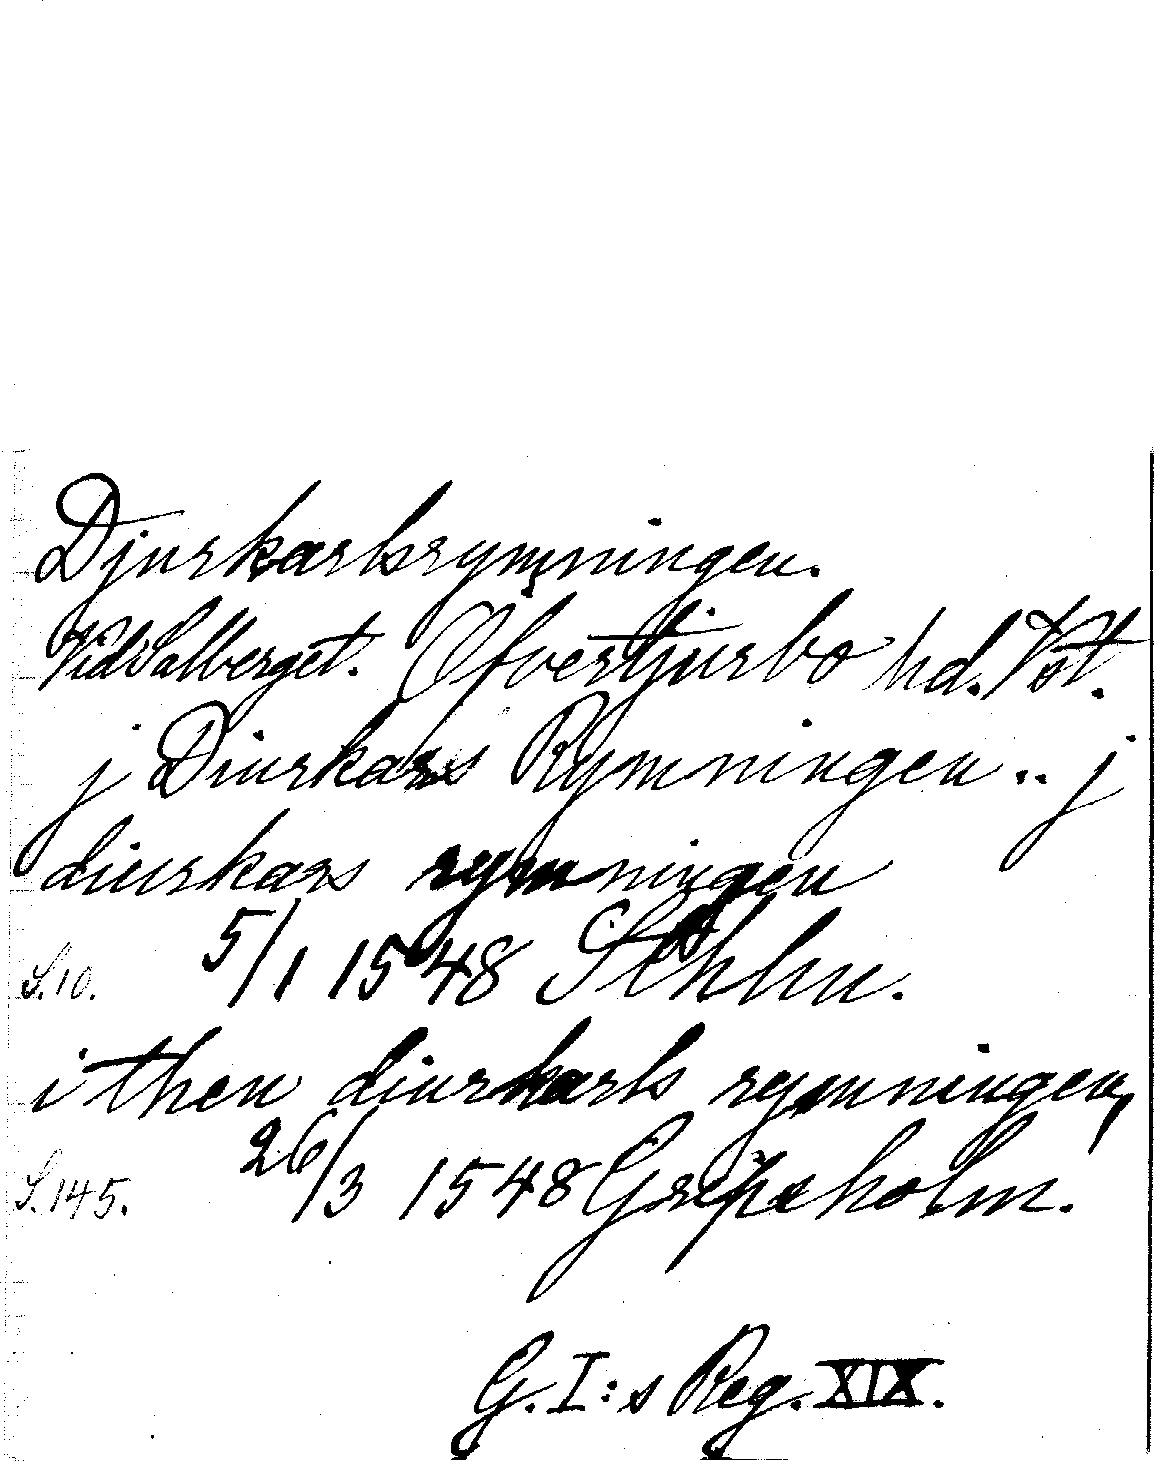 Djurkarlsrymningen.
Vid Salberget. Öfvertjurbo hd. Vstl.
j Diurkars Rymningen .. j
diurkars rymningen
S. 10. 5/1 1548 Sthlm.
i then diurkarls rymningen,
S. 145. 26/3 1548 Gripsholm.
G. I:s Reg. XIX.